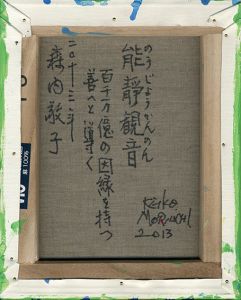 のうじょうかんのん
能靜観音
百千万億の因縁を持つ
善へと導く
二〇十三年
森内敬子
Keiko
MORIUCHI
2013
100%